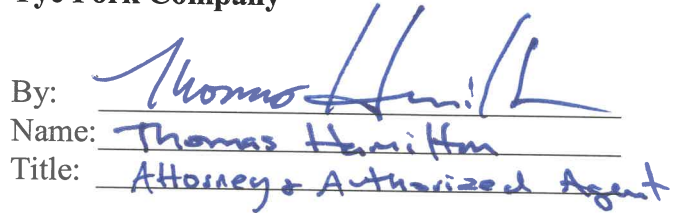 Tye Fork Company
By: Thomas Hamilton
Name: Thomas Hamilton
Title: Attorney & Authorized Agent